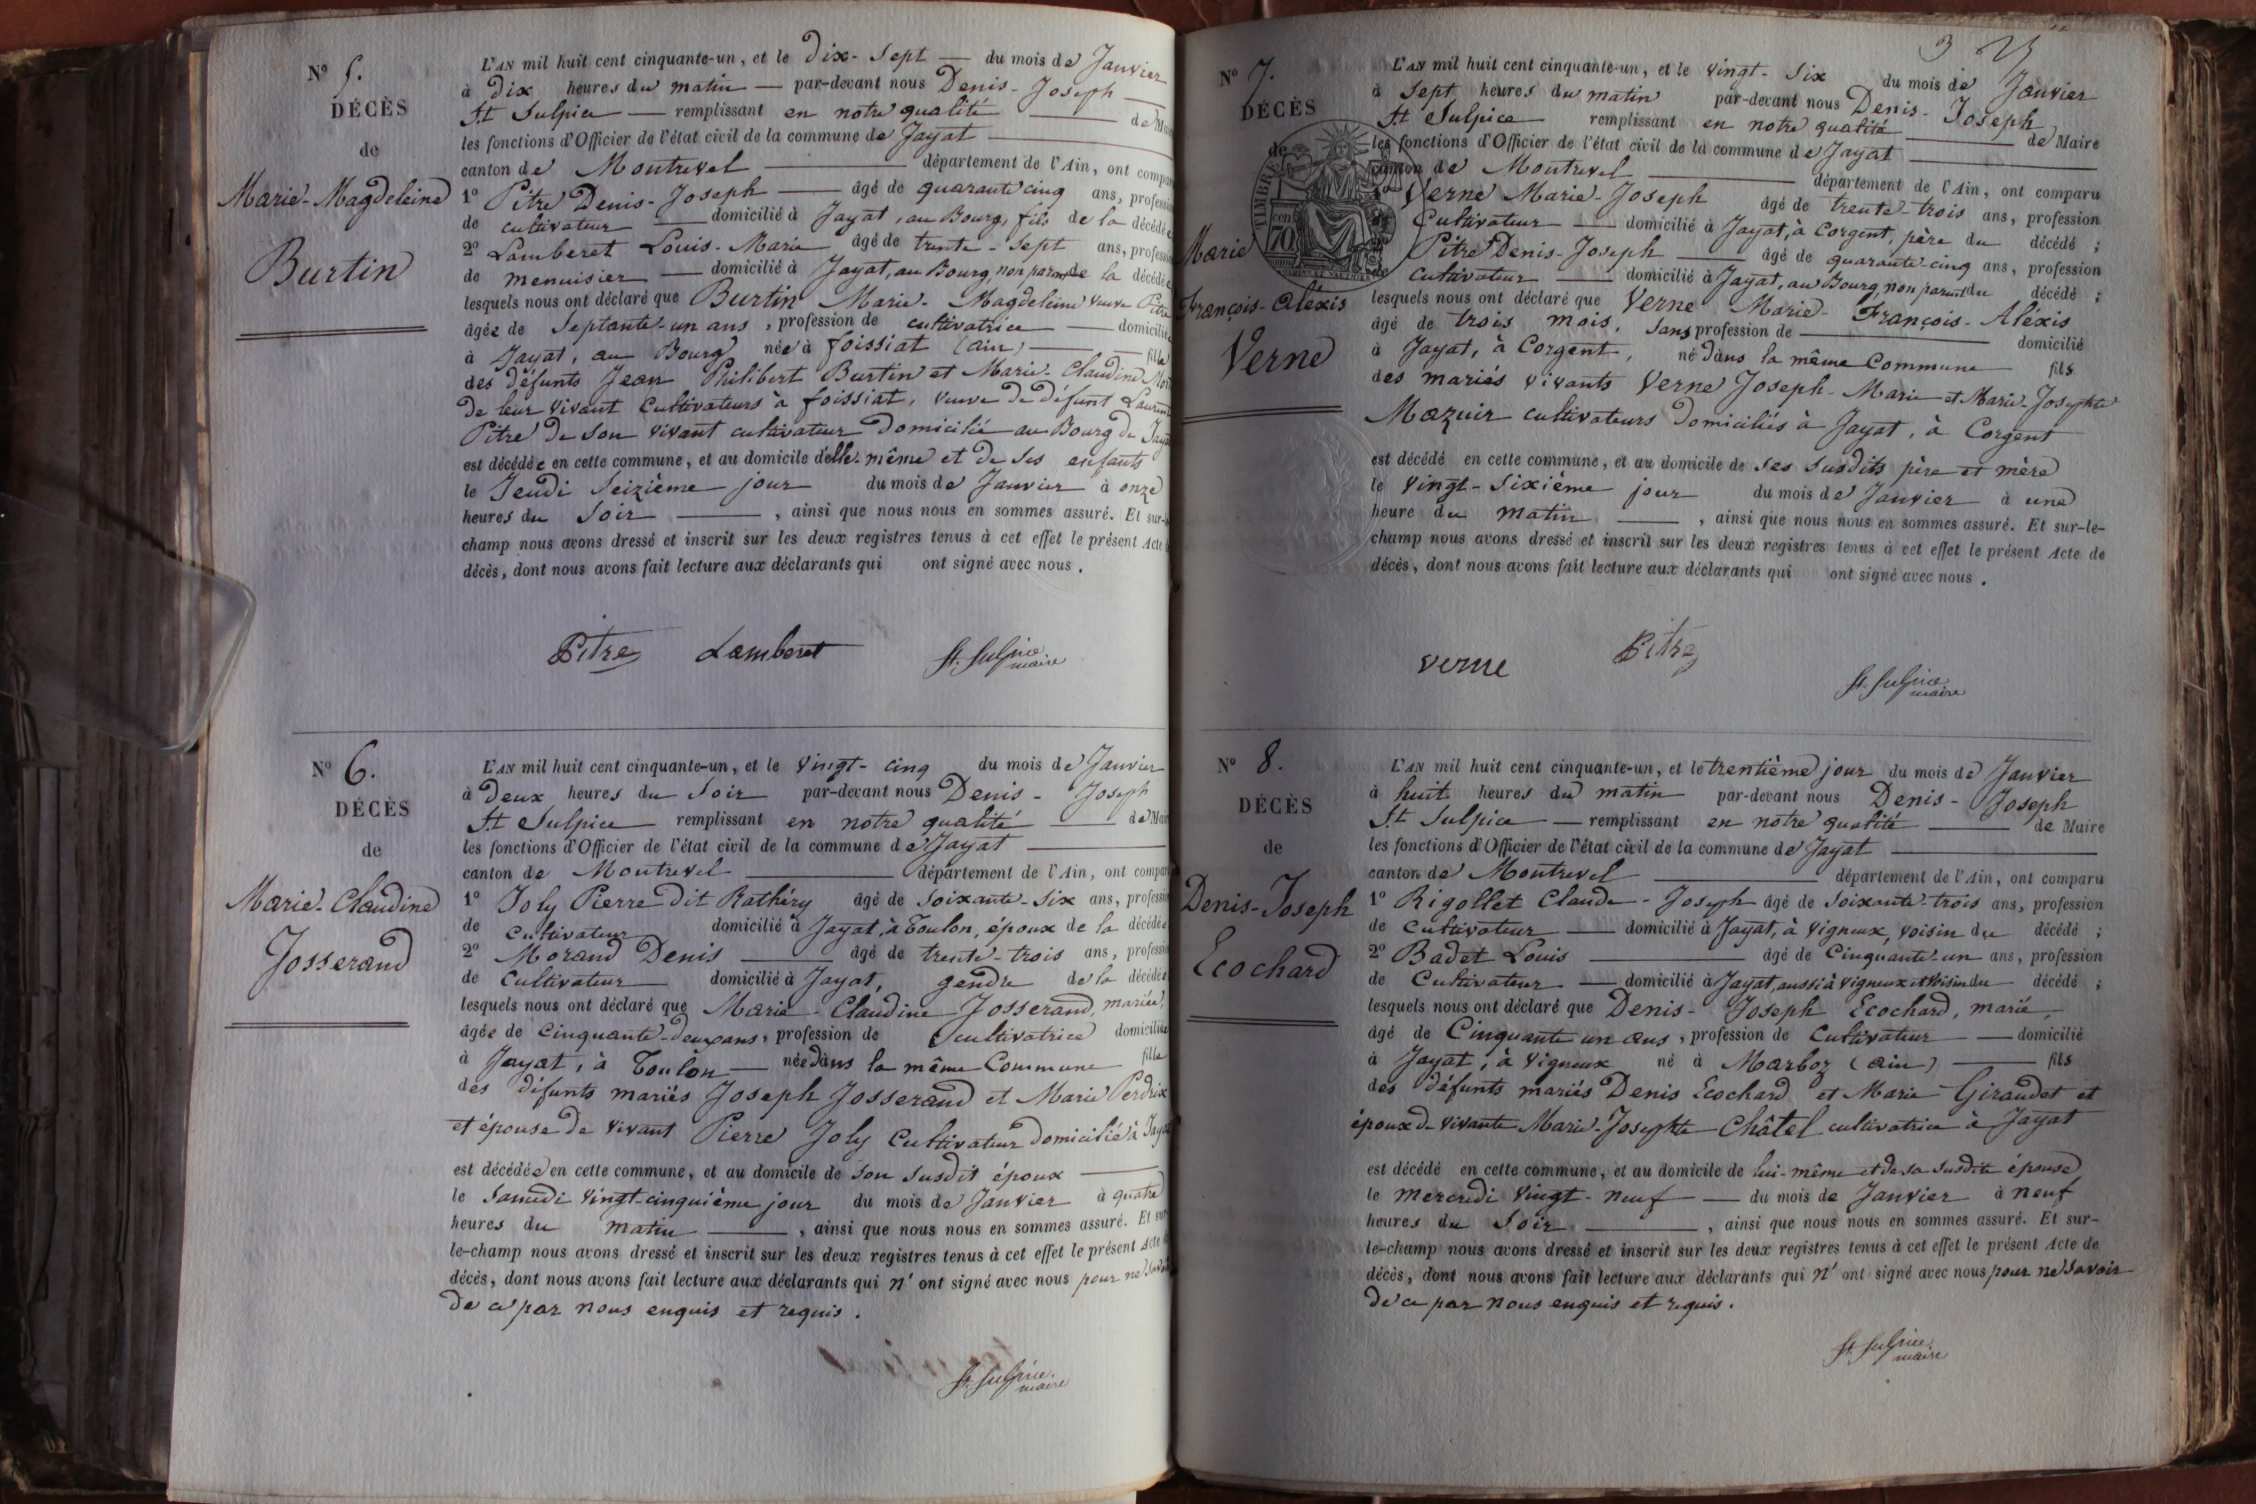 Nº 5.
DÉCÈS
de
Marie-Magdeleine
Burtin
L'AN mil huit cent cinquante-un, et le dix-sept du mois de Janvier
à dix heures du matin par-devant nous Denis-Joseph
St Sulpice remplissant en notre qualité de
les fonctions d'Officier de l'état civil de la commune de Jayat
canton de Montrevel département de l'Ain, ont
1º Pitre Denis-Joseph âgé de quarante cinq ans,
de cultivateur domicilié à Jayat, au Bourg, fils de la décédée
2º Lamberet Louis-Marie âgé de trente-sept ans,
de menuisier domicilié à Jayat, au Bourg, non parent de la décédée
lesquels nous ont déclaré que Burtin Marie-Magdeleine veuve Pitre
âgée de Septante-un ans, profession de cultivatrice
à Jayat, au Bourg née à foissiat (ain) fille
des défunts Jean Philibert Burtin et Marie-Claudine
De leur vivant Cultivateurs à foissiat, veuve De défunt Laurent
Pitre De son vivant cultivateur Domicilié au Bourg de Jayat
est décédée en cette commune, et au domicile d'elle-même et de ses enfants
le Jeudi Seizième jour du mois de Janvier à onze
heures du Soir, ainsi que nous nous en sommes assuré. Et
champ nous avons dressé et inscrit sur les deux registres tenus à cet effet le présent Acte
décès, dont nous avons fait lecture aux déclarants qui ont signé avec nous.
Pitre Lamberet St. Sulpice
maire
Nº 6.
DÉCÈS
de
Marie-Claudine
Josserand
L'AN mil huit cent cinquante-un, et le vingt-cinq du mois de Janvier
à deux heures du Soir par-devant nous Denis-Joseph
St Sulpice remplissant en notre qualité de
les fonctions d'Officier de l'état civil de la commune de Jayat
canton de Montrevel département de l'Ain, ont
1º Joly Pierre dit Rathéry âgé de Soixante-six ans,
de cultivateur domicilié à Jayat, à Toulon, époux de la décédée
2º Morand Denis âgé de trente-trois ans,
de Cultivateur domicilié à Jayat, gendre de la décédée
lesquels nous ont déclaré que Marie-Claudine Josserand, mariée,
âgée de Cinquante-deux ans, profession de cultivatrice domiciliée
à Jayat, à Toulon née dans la même Commune fille
des défunts mariés Joseph Josserand et Marie Perdrix
et épouse de vivant Pierre Joly Cultivateur Domicilié à Jayat
est décédée en cette commune, et au domicile de son susdit époux
le Samedi vingt-cinquième jour du mois de Janvier à quatre
heures du matin, ainsi que nous nous en sommes assuré. Et
le-champ nous avons dressé et inscrit sur les deux registres tenus à cet effet le présent Acte
décès, dont nous avons fait lecture aux déclarants qui n' ont signé avec nous pour ne Savoir
De ce par nous enquis et requis.
St. Sulpice
maire
3
Nº 7.
DÉCÈS
de
Marie
François-Aléxis
Verne
L'AN mil huit cent cinquante-un, et le vingt-six du mois de Janvier
à Sept heures du matin par-devant nous Denis-Joseph
St Sulpice remplissant en notre qualité de Maire
les fonctions d'Officier de l'état civil de la commune de Jayat
canton de Montrevel département de l'Ain, ont comparu
Verne Marie-Joseph âgé de trente-trois ans, profession
Cultivateur domicilié à Jayat, à Corgent, père du décédé;
Pitre Denis-Joseph âgé de quarante-cinq ans, profession
cultivateur domicilié à Jayat, au Bourg, non parent du décédé;
lesquels nous ont déclaré que Verne Marie-François-Aléxis
âgé de trois mois, Sans profession de domicilié
à Jayat, à Corgent, né dans la même Commune fils
des mariés vivants Verne Joseph-Marie et Marie-Josephte
Mazuir cultivateurs Domiciliés à Jayat, à Corgent
est décédé en cette commune, et au domicile de ses susdits père et mère
le vingt-sixième jour du mois de Janvier à une
heure du matin, ainsi que nous nous en sommes assuré. Et sur-le-
champ nous avons dressé et inscrit sur les deux registres tenus à cet effet le présent Acte de
décès, dont nous avons fait lecture aux déclarants qui ont signé avec nous.
verne Pitre
St. Sulpice
maire
Nº 8.
DÉCÈS
de
Denis-Joseph
Ecochard
L'AN mil huit cent cinquante-un, et le trentième jour du mois de Janvier
à huit heures du matin par-devant nous Denis-Joseph
St Sulpice remplissant en notre qualité de Maire
les fonctions d'Officier de l'état civil de la commune de Jayat
canton de Montrevel département de l'Ain, ont comparu
1º Rigollet Claude-Joseph âgé de Soixante-trois ans, profession
de Cultivateur domicilié à Jayat, à Vigneux, voisin du décédé;
2º Badet Louis âgé de Cinquante-un ans, profession
de Cultivateur domicilié à Jayat, aussi à Vigneux et Voisin du décédé;
lesquels nous ont déclaré que Denis-Joseph Ecochard, marié,
âgé de Cinquante un ans, profession de Cultivateur domicilié
à Jayat, à Vigneux né à Marboz (ain) fils
des défunts mariés Denis Ecochard et Marie Giraudet et
époux de vivante Marie-Josephte Châtel cultivatrice à Jayat
est décédé en cette commune, et au domicile de lui-même et de sa susdite épouse
le mercredi vingt-neuf du mois de Janvier à neuf
heures du Soir, ainsi que nous nous en sommes assuré. Et sur-
le-champ nous avons dressé et inscrit sur les deux registres tenus à cet effet le présent Acte de
décès, dont nous avons fait lecture aux déclarants qui n' ont signé avec nous pour ne Savoir
De ce par nous enquis et requis.
St. Sulpice
maire